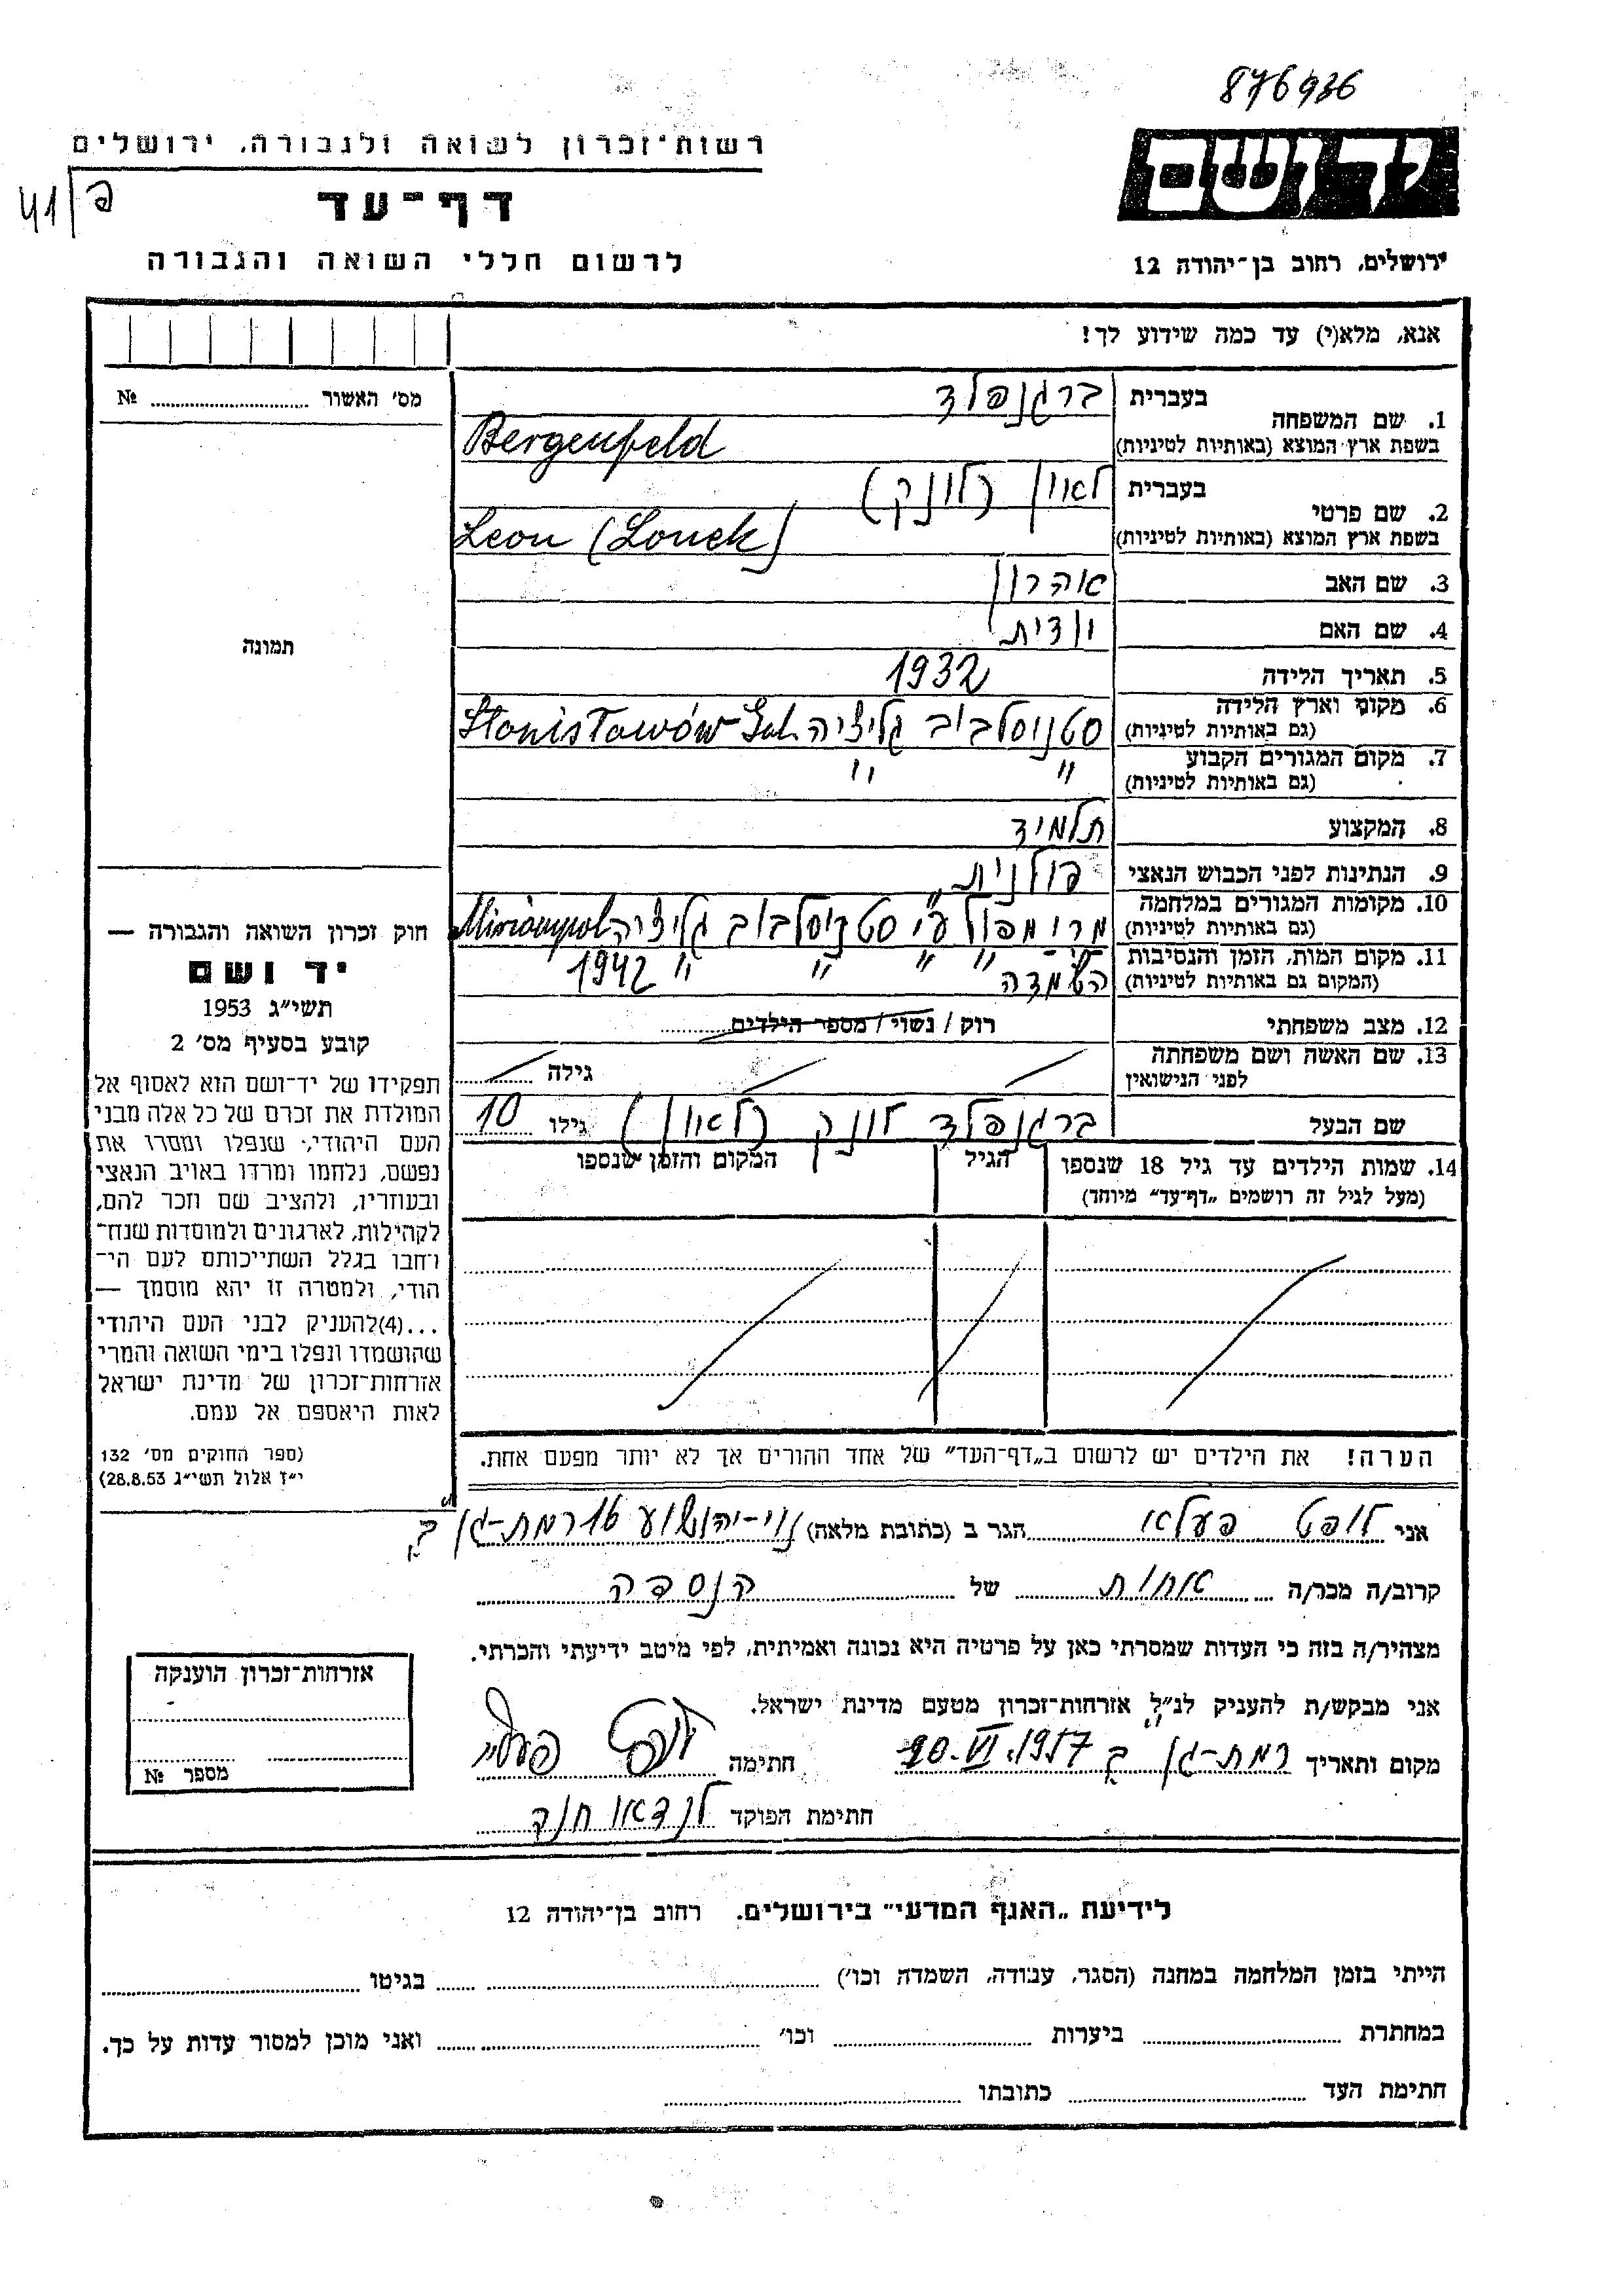 876936
יד ושם
ירושלים, רחוב בן־יהודה 12
רשות־זכרון לשואה ולגבורה, ירושלים
פ/41
דף־עד
לרשום חללי השואה והגבורה
אנא, מלא(י) עד כמה שידוע לך!
מס׳ האשור ........ №
תמונה
1. שם המשפחה
בעברית ברגנפלד
בשפת ארץ המוצא (באותיות לטיניות) Bergenfeld
2. שם פרטי
בעברית לאון (לונק)
בשפת ארץ המוצא (באותיות לטיניות) Leon (Lonek)
3. שם האב אהרון
4. שם האם
5. תאריך הלידה 1932
6. מקום וארץ הלידה
(גם באותיות לטיניות) סטניסלבוב גליציה Stanisławów Gal.
7. מקום המגורים הקבוע " "
(גם באותיות לטיניות)
8. המקצוע תלמיד
9. הנתינות לפני הכבוש הנאצי פולנית
10. מקומות המגורים במלחמה
(גם באותיות לטיניות) מרימפול ע"י סטניסלבוב גליציה Miriampol
11. מקום המות, הזמן והנסיבות
(המקום גם באותיות לטיניות) השמדה " " " " 1942
12. מצב משפחתי רוק / נשוי / מספר הילדים
13. שם האשה ושם משפחתה
לפני הנישואין
גילה
שם הבעל ברגנפלד לונק (לאון) גילו 10
14. שמות הילדים עד גיל 18 שנספו
(מעל לגיל זה רושמים „דף־עד" מיוחד)
הגיל
המקום והזמן שנספו
הערה! את הילדים יש לרשום ב„דף־העד" של אחד ההורים אך לא יותר מפעם אחת.
חוק זכרון השואה והגבורה —
יד ושם
תשי״ג 1953
קובע בסעיף מס׳ 2
תפקידו של יד־ושם הוא לאסוף אל
המולדת את זכרם של כל אלה מבני
העם היהודי, שנפלו ומסרו את
נפשם, נלחמו ומרדו באויב הנאצי
ובעוזריו, ולהציב שם וזכר להם,
לקהילות, לארגונים ולמוסדות שנח־
רבו בגלל השתייכותם לעם הי־
הודי, ולמטרה זו יהא מוסמך —
...(4)להעניק לבני העם היהודי
שהושמדו ונפלו בימי השואה והמרי
אזרחות־זכרון של מדינת ישראל
לאות היאספם אל עמם.
(ספר החוקים מס׳ 132
י״ז אלול תשי״ג 28.8.53)
אני לופט פעלא הגר ב (כתובת מלאה) נוי-יהושוע 16 רמת-גן ב
קרוב/ה מכר/ה אחות של הנספה
מצהיר/ה בזה כי העדות שמסרתי כאן על פרטיה היא נכונה ואמיתית, לפי מיטב ידיעתי והכרתי.
אני מבקש/ת להעניק לנ״ל אזרחות־זכרון מטעם מדינת ישראל.
מקום ותאריך רמת-גן ב 20.VI.1957 חתימה לופט
חתימת הפוקד לנדאו
אזרחות־זכרון הוענקה
מספר №
לידיעת „האגף המדעי" בירושלים. רחוב בן־יהודה 12
הייתי בזמן המלחמה במחנה (הסגר, עבודה, השמדה וכו׳) ........ בגיטו ........
במחתרת ........ ביערות ........ וכו׳ ........ ואני מוכן למסור עדות על כך.
חתימת העד ........ כתובתו ........